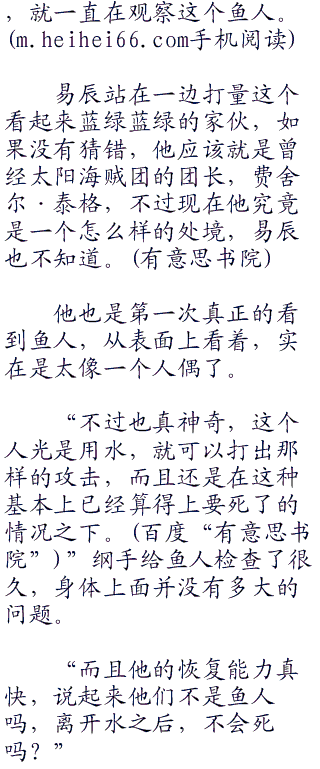 ，就一直在观察这个鱼人。
(m.heihei66.com手机阅读)
易辰站在一边打量这个
看起来蓝绿蓝绿的家伙，如
果没有猜错，他应该就是曾
经太阳海贼团的团长，费舍
尔·泰格，不过现在他究竟
是一个怎么样的处境，易辰
也不知道。(有意思书院)
他也是第一次真正的看
到鱼人，从表面上看着，实
在是太像一个人偶了。
“不过也真神奇，这个
人光是用水，就可以打出那
样的攻击，而且还是在这种
基本上已经算得上要死了的
情况之下。(百度“有意思书
院”)”纲手给鱼人检查了很
久，身体上面并没有多大的
问题。
“而且他的恢复能力真
快，说起来他们不是鱼人
吗，离开水之后，不会死
吗？”